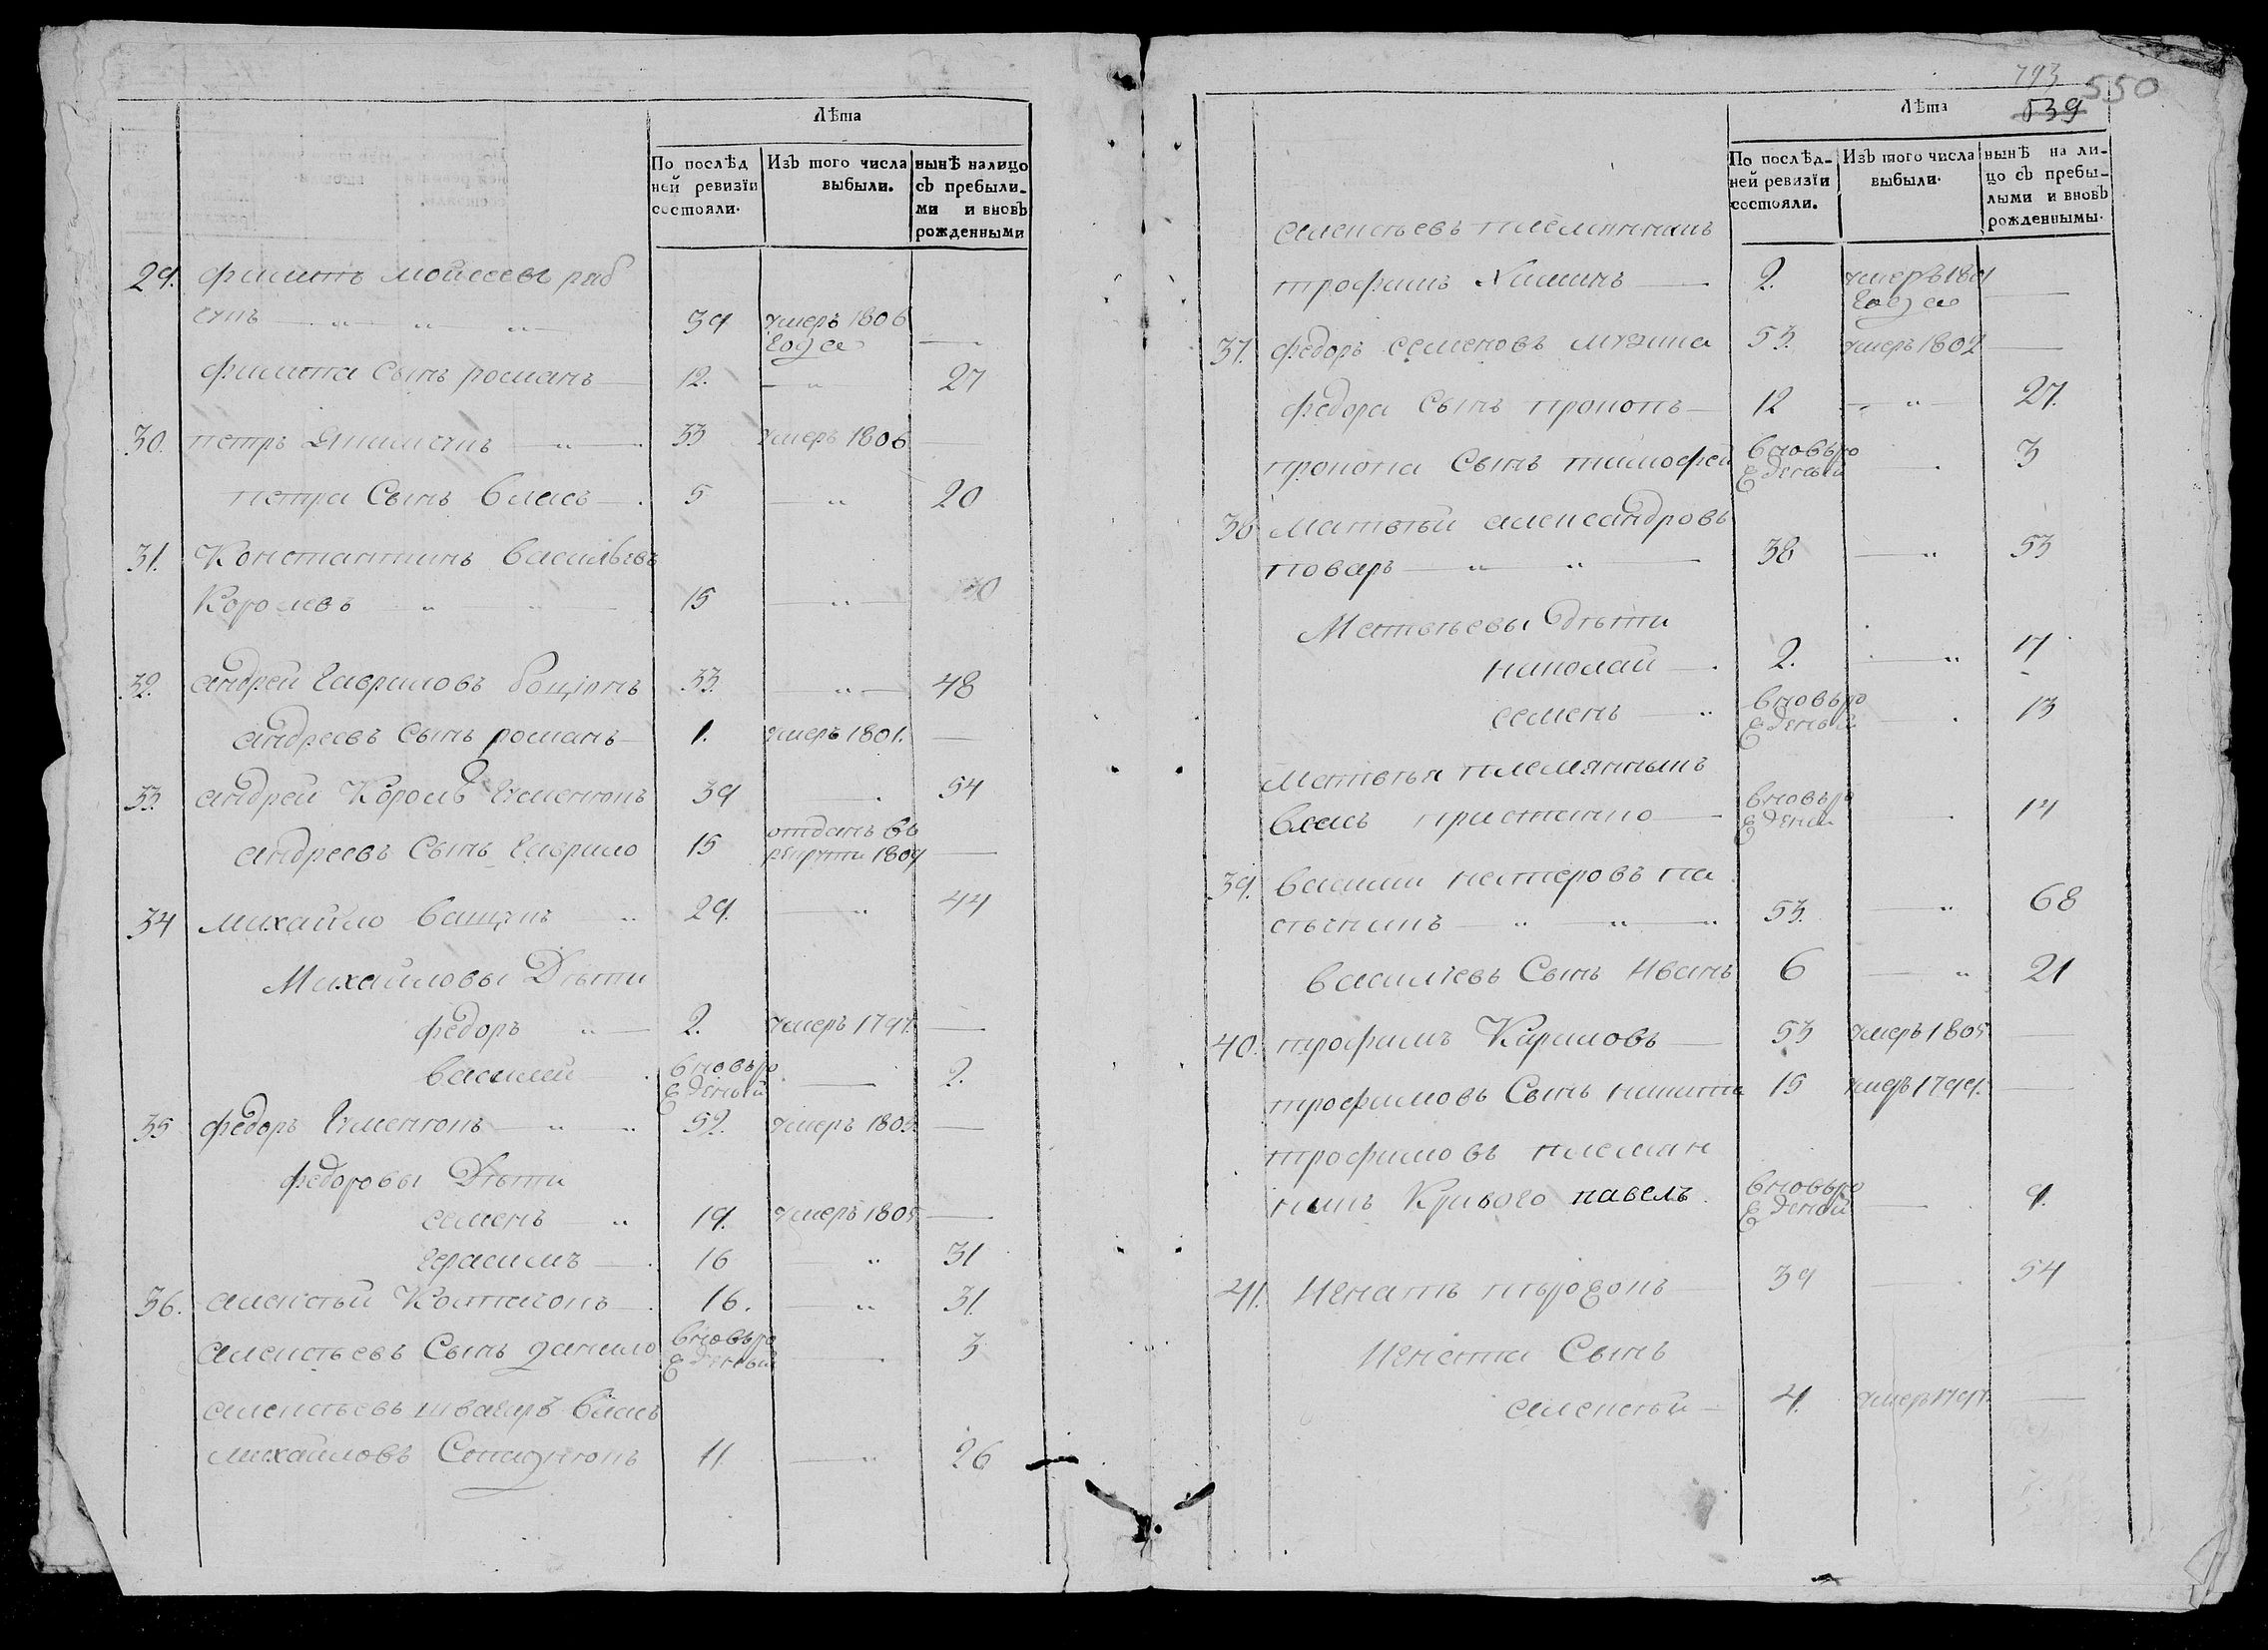 Лѣта
По послѣд
ней ревизїи
состояли.
Изъ того числа
выбыли.
нынѣ налицо
съ пребыли-
ми и вновь
рожденными
29. филипъ мойсеевъ ряб
39 умеръ 1806
года —
филипа сынъ романъ — 12. — 27
30. петръ — 33 умеръ 1806 —
петра Сынъ власъ — 5 — 20
31. Константинъ васильевъ
Королевъ 15 — 30
32. андрей гавриловъ 33. — 48
андреевъ сынъ романъ 1. умеръ 1801. —
33. андрей Король 39 — 54
андреевъ Сынъ гаврило 15 отданъ въ
рекруты 1809 —
34 михайло ващукъ 29. — 44
Михайловы Дѣти
федоръ — 2. умеръ 1797. —
василий вновь ро
жденый — 2.
35 федоръ 52. умеръ 1805. —
федоровы Дѣти
семенъ 19. умеръ 1805 —
герасимъ — 16 — 31
36. алексѣй — 16. — 31.
алексѣевъ Сынъ данило вновь ро
жденый — 3
алексѣевъ швагеръ власъ
михайловъ 11 — 26
793
550
539
Лѣта
По послѣд-
ней ревизїи
состояли.
Изъ того числа
выбыли.
нынѣ на ли-
цо съ пребы-
лыми и вновь
рожденнымы.
алексѣевъ племянникъ
трофимъ — 2. умеръ 1801
года —
37. федоръ семеновъ 53. умеръ 1802 —
федора сынъ прокопъ — 12 — 27.
прокопа Сынъ тимофей вновь ро
жденый — 3
38 матвѣй александровъ
поваръ — 38 — 53
Матвѣевы дѣти
николай — 2. — 17
семенъ — вновь ро
жденый — 13
Матвѣя племянникъ
власъ — вновь ро
жденый — 14
39. василий нестеровъ па
сѣчникъ — 53. — 68
василіевъ Сынъ Иванъ 6 — 21
40. трофимъ Кириловъ — 53 умеръ 1805 —
трофимовъ Сынъ никита 15 умеръ 1799. —
трофимовъ племян
никъ Кривого павелъ. вновь ро
жденый — 9.
41. Игнатъ — 39 — 54
Игната Сынъ
алексѣй — 4. умеръ 1797. —